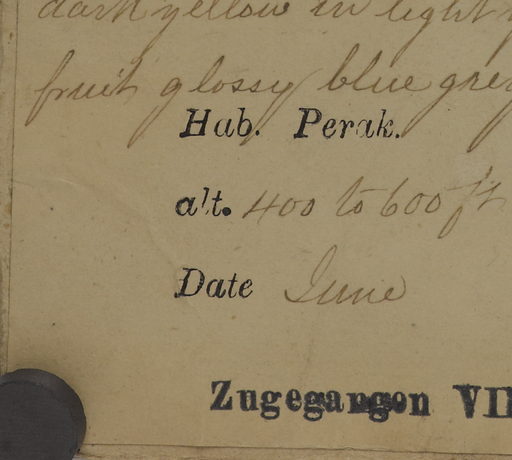 dark yellow in light
fruit glossy blue grey
Hab. Perak.
alt. 400 to 600 ft
Date June
Zugegangen VII